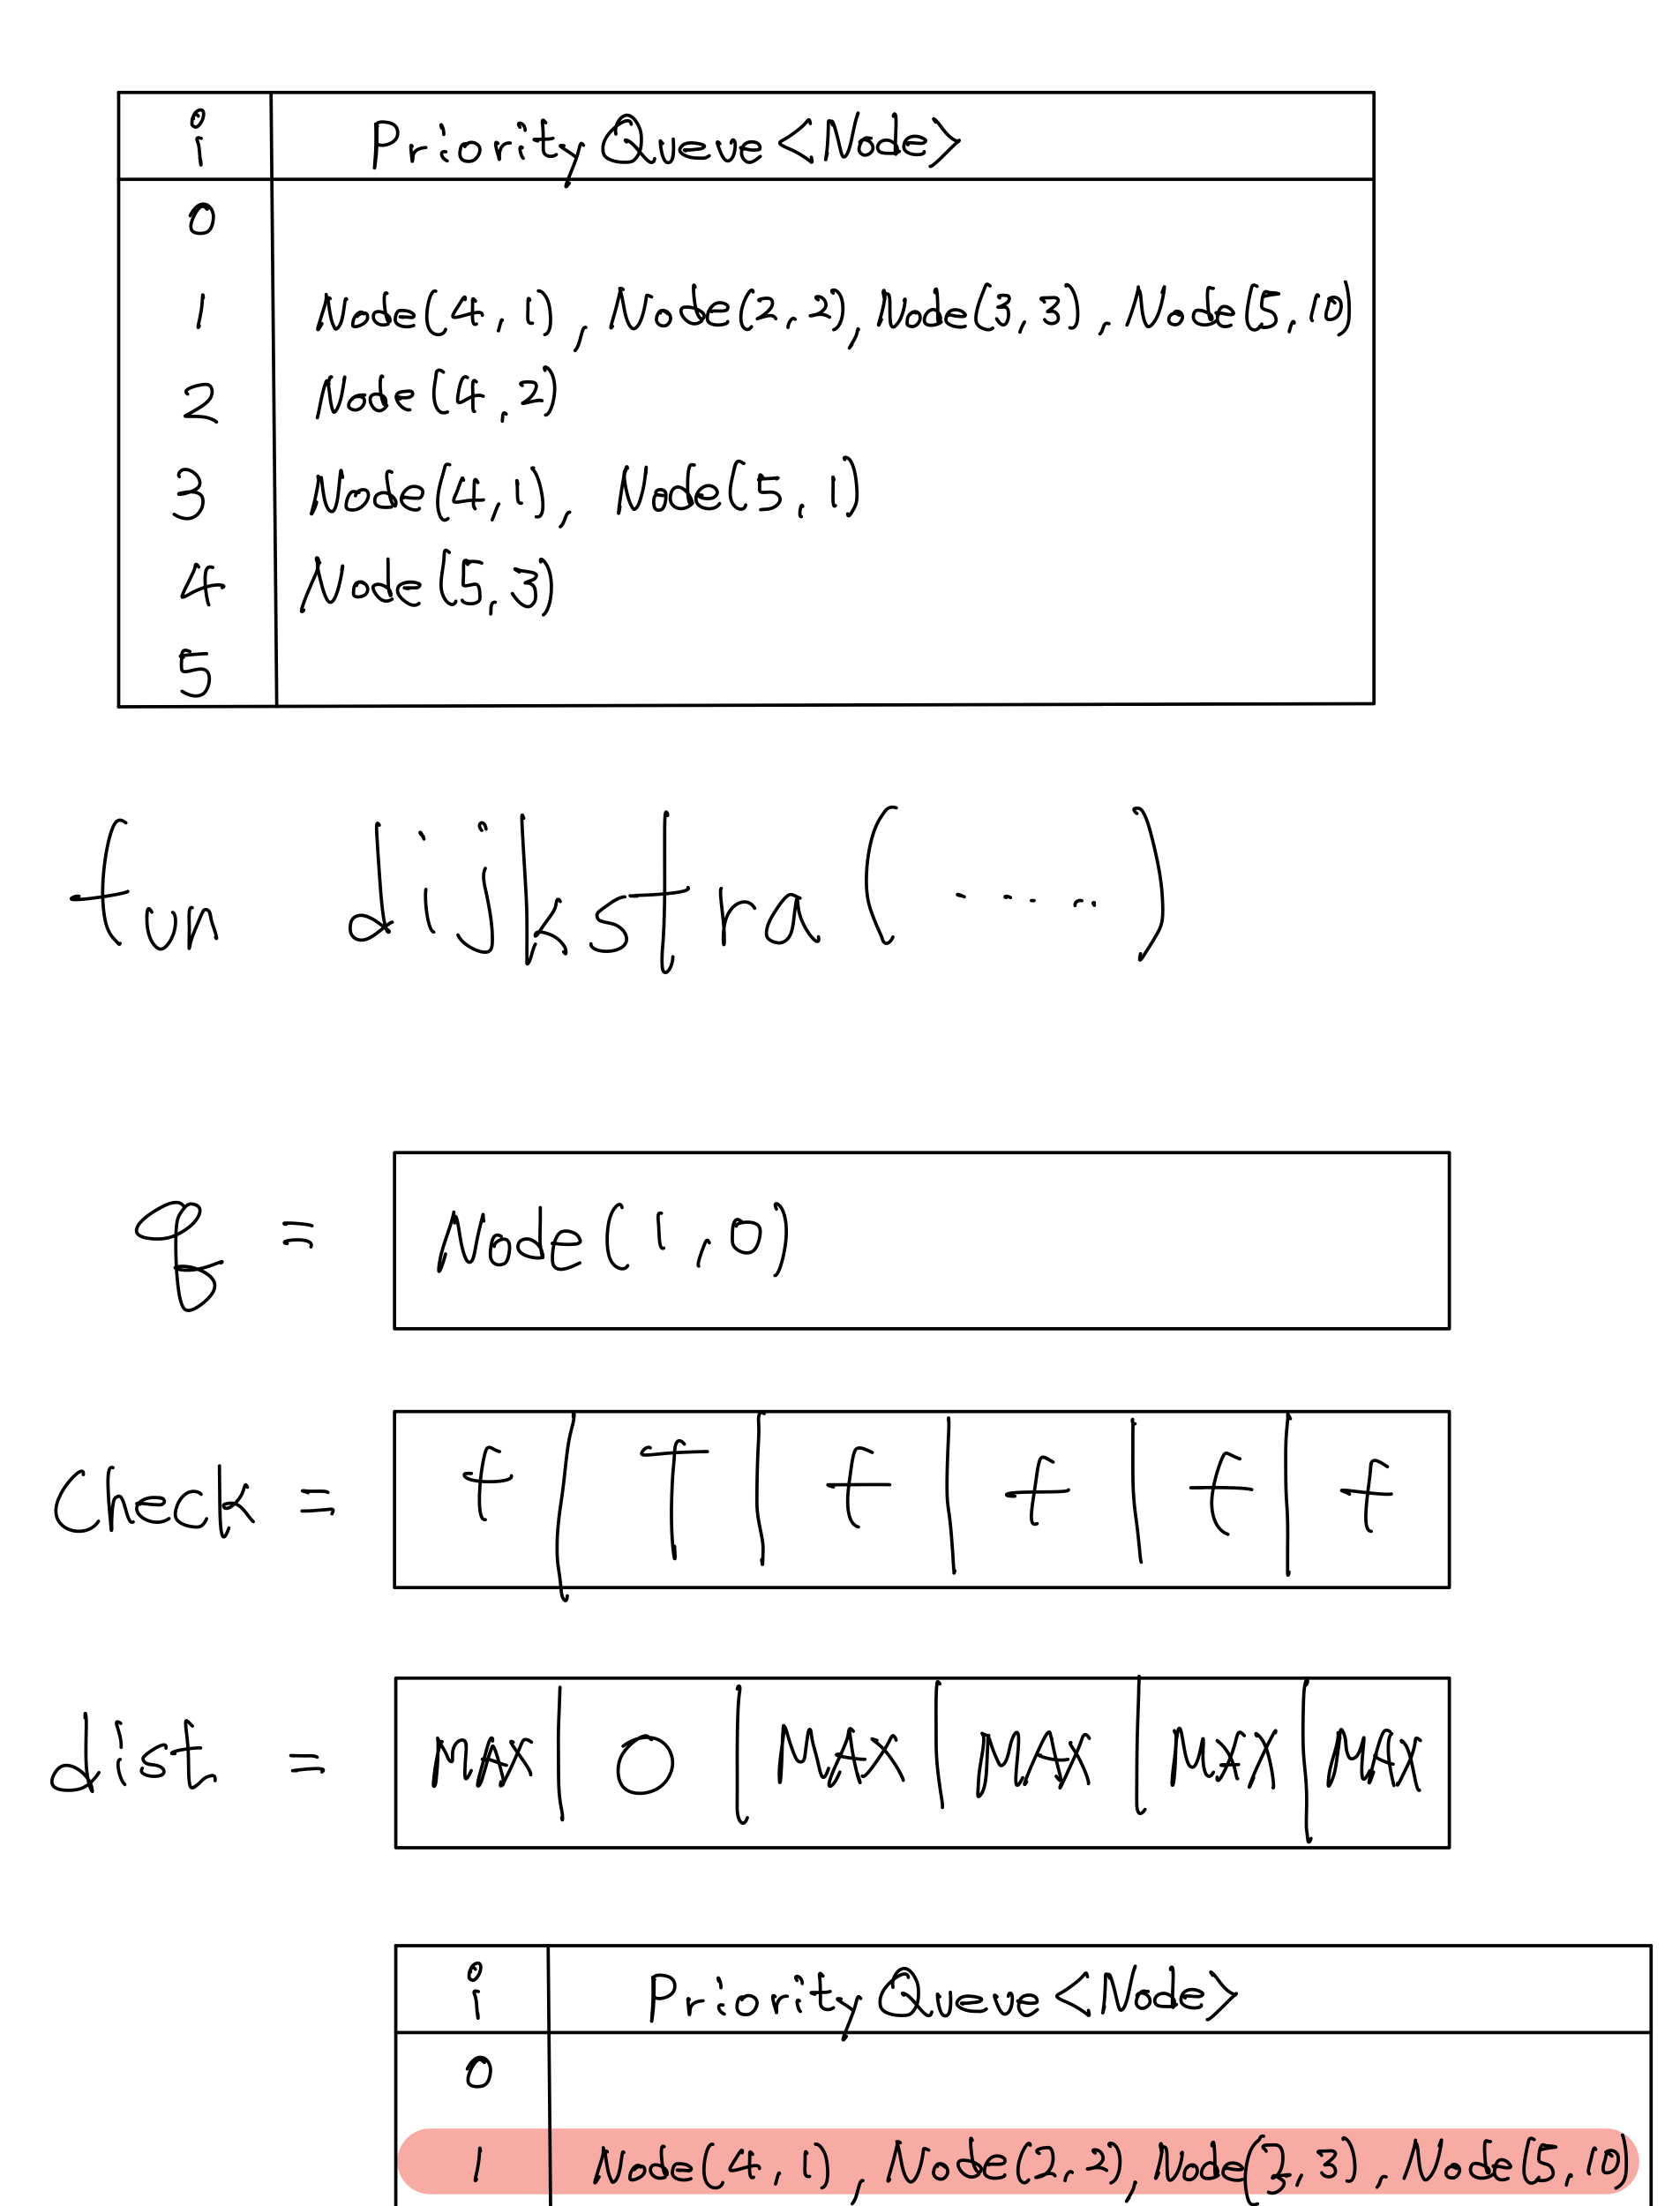 i PriorityQueue<Node>
0
1 Node(4,1), Node(2,2), Node(3,3), Node(5,10)
2 Node(4,2)
3 Node(4,1), Node(5,1)
4 Node(5,3)
5
fun dijkstra(.....)
q = Node(1,0)
check = f | T | f | f | f | f
dist = MAX | 0 | MAX | MAX | MAX | MAX
i PriorityQueue<Node>
0
1 Node(4,1), Node(2,2), Node(3,3), Node(5,10)